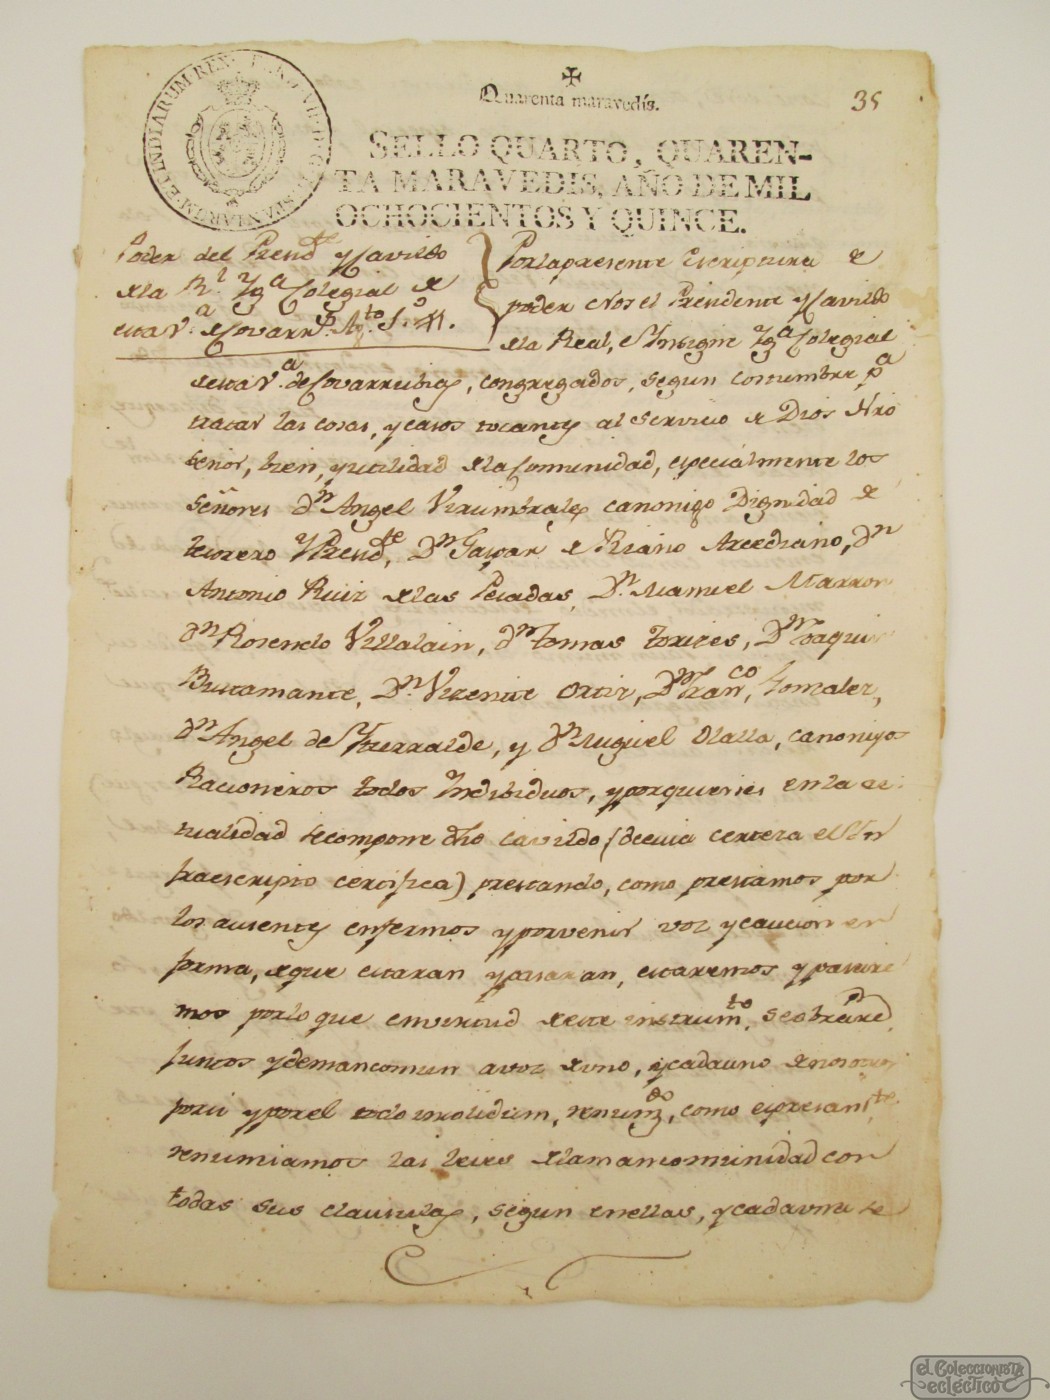 Quarenta maravedís.
35
SELLO QUARTO, QUAREN-
TA MARAVEDIS, AÑO DE MIL
OCHOCIENTOS Y QUINCE.
HISPANIARUM ET INDIARUM REX
Poder del Presid.te y Cavildo
de la R.l Yg.a Colegial de
esta V.a de Covarr.s
Por la presente escriptura de
poder Nos el Presidente y Cavildo
de la Real, e Insigne Yg.a Colegial
de esta V.a de Covarrubias, congregados, segun costumbre p.a
tratar las cosas, y casos tocantes al servicio de Dios Nro
señor, bien, y utilidad de la Comunidad, especialmente los
Señores D.n Angel Virumbrales canonigo Dignidad de
tesorero y Presid.te, D.n Gaspar de Riaño Arcediano, D.n
Antonio Ruiz de las Posadas, D.n Manuel Marron
D.n Rosendo Villalain, D.n Tomas Torres, D.n Joaquin
Bustamante, D.n Vizente Ortiz, D.n Fran.co Gonzalez,
D.n Angel de Yturralde, y D.n Miguel Olalla, canonigos
Racioneros todos Yndibiduos, y por quienes en la ac-
tualidad se compone dho cavildo (de cuia certeza el Yn
fraescripto certifica) prestando, como prestamos por
los ausentes enfermos y por venir voz y caucion en
forma, de que estaran y pasaran, estaremos y pasare
mos por lo que en virtud de este instrum.to, se obrare,
juntos y de mancomun a voz de uno, y cada uno de nosotros
por si y por el todo insolidum, renunz.do, como espresam.te
renunciamos las leies de la mancomunidad con
todas sus clausulas, segun en ellas, y cada una se
el Coleccionista
ecléctico